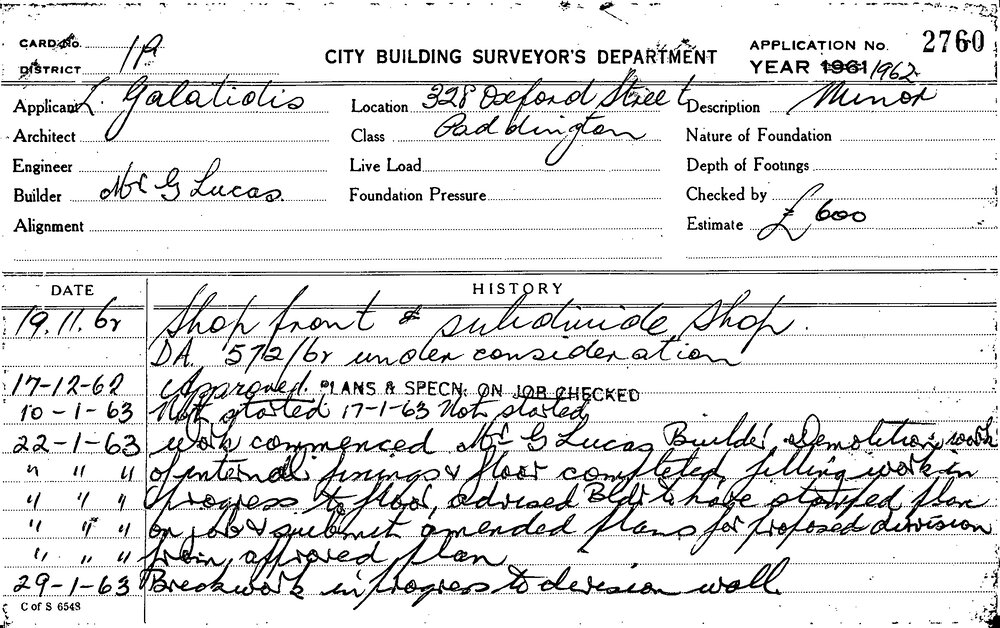 CARD No. CITY BUILDING SURVEYOR'S DEPARTMENT APPLICATION No. 2760
DISTRICT 1P YEAR 1961 1962
Applicant L. Galatidis Location 328 Oxford Street Description Minor
Architect Class Paddington Nature of Foundation
Engineer Live Load Depth of Footings
Builder Mr G Lucas. Foundation Pressure Checked by
Alignment Estimate £600
DATE HISTORY
19.11.62 Shop front & subdivide Shop.
DA. 572/62 under consideration
17-12-62 Approved. PLANS & SPECN. ON JOB CHECKED
10-1-63 Not started 17-1-63 Not started
22-1-63 work commenced Mr G Lucas Builder. Demolition work
" " " of internal fixings & floor completed, filling work in
" " " progress to floor, advised Bldr to have stamped plan
" " " on job & submit amended plans for proposed division
" " " from approved plan
29-1-63 Breckwork in progress to devision wall.
C of S 6548